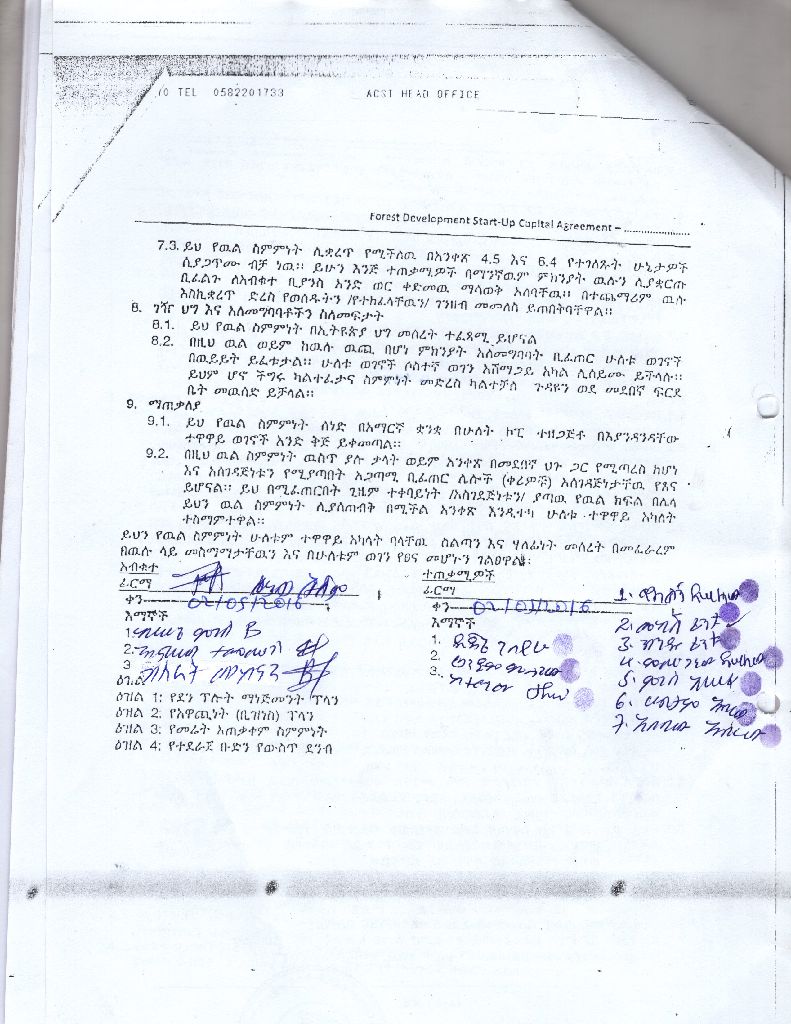 TEL 0582201733 ACSI HEAD OFFICE
Forest Development Start-Up Capital Agreement – ......................
7.3. ይህ የዉል ስምምነት ሊቋረጥ የሚችለዉ በአንቀጽ 4.5 እና 6.4 የተገለጹት ሁኔታዎች
ሲያጋጥሙ ብቻ ነዉ፡፡ ይሁን እንጅ ተጠቃሚዎች በማንኛዉም ምክንያት ዉሉን ሊያቋርጡ
ቢፈልጉ ለአብቁተ ቢያንስ አንድ ወር ቀድመዉ ማሳወቅ አለባቸዉ፡፡ በተጨማሪም ዉሉ
እስኪቋረጥ ድረስ የወሰዱትን /የተከፈላቸዉን/ ገንዘብ መመለስ ይጠበቅባቸዋል፡፡
8. ገዥ ህግ እና አለመግባባቶችን ስለመፍታት
8.1. ይህ የዉል ስምምነት በኢትዮጵያ ህግ መሰረት ተፈጻሚ ይሆናል
8.2. በዚህ ዉል ወይም ከዉሉ ዉጪ በሆነ ምክንያት አለመግባባት ቢፈጠር ሁለቱ ወገኖች
በዉይይት ይፈቱታል፡፡ ሁለቱ ወገኖች ሶስተኛ ወገን አሸማጋይ አካል ሊሰይሙ ይችላሉ፡፡
ይህም ሆኖ ችግሩ ካልተፈታና ስምምነት መድረስ ካልተቻለ ጉዳዩን ወደ መደበኛ ፍርደ
ቤት መዉሰድ ይቻላል፡፡
9. ማጠቃለያ
9.1. ይህ የዉል ስምምነት ሰነድ በአማርኛ ቋንቋ በሁለት ኮፒ ተዘጋጅቶ በእያንዳንዳቸው
ተዋዋይ ወገኖች አንድ ቅጅ ይቀመጣል፡፡
9.2. በዚህ ዉል ስምምነት ዉስጥ ያሉ ቃላት ወይም አንቀጽ በመደበኛ ህጉ ጋር የሚጣረስ ከሆነ
እና አስገዳጅነቱን የሚያጣበት አጋጣሚ ቢፈጠር ሌሎች (ቀሪዎቹ) አስገዳጅነታቸዉ የጸና
ይሆናል፡፡ ይህ በሚፈጠርበት ጊዜም ተቀባይነት /አስገደጅነቱን/ ያጣዉ የዉል ክፍል በሌላ
ይህን ዉል ስምምነት ሊያስጠብቅ በሚችል አንቀጽ እንዲተካ ሁለቱ ተዋዋይ አካለት
ተስማምተዋል፡፡
ይህን የዉል ስምምነት ሁለቱም ተዋዋይ አካላት ባላቸዉ ስልጣን እና ሃላፊነት መሰረት በመፈራረም
በዉሉ ላይ መስማማታቸዉን እና በሁለቱም ወገን የፀና መሆኑን ገልፀዋል፡
አብቁተ
ፊርማ
ቀን 02/05/2016
እማኞች
1.
2.
3
ዕዝል
ዕዝል 1: የደን ፕሎት ማነጅመንት ፕላን
ዕዝል 2: የአዋጪነት (ቢዝነስ) ፕላን
ዕዝል 3: የመሬት አጠቃቀም ስምምነት
ዕዝል 4: የተደራጀ ቡድን የውስጥ ደንብ
ተጠቃሚዎች
ፊርማ
ቀን 02/05/2016
እማኞች
1.
2.
3.
1.
2.
3.
4.
5.
6.
7.